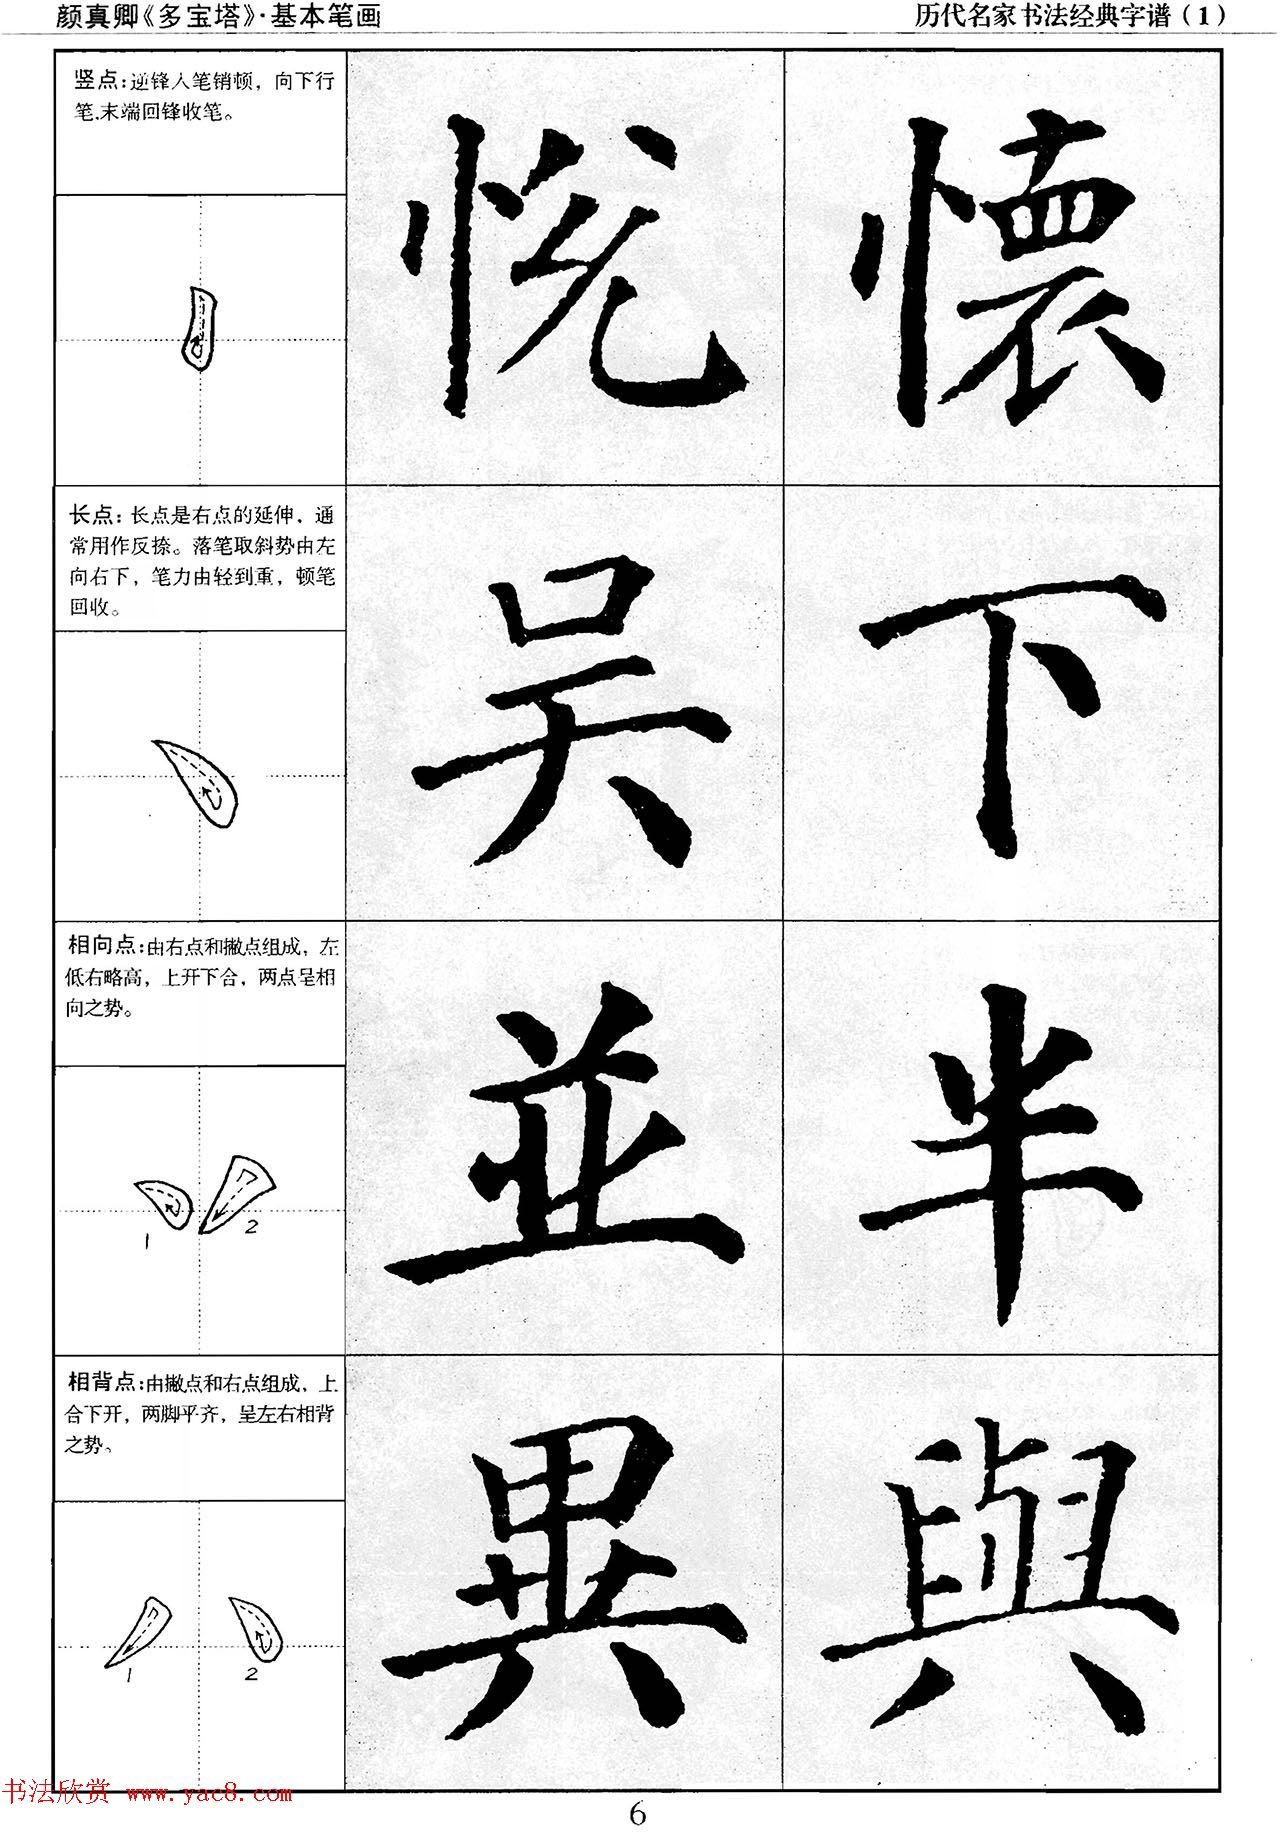 颜真卿《多宝塔》·基本笔画
历代名家书法经典字谱（1）
竖点：逆锋入笔销顿，向下行
笔.末端回锋收笔。
悦 懷
长点：长点是右点的延伸，通
常用作反捺。落笔取斜势由左
向右下，笔力由轻到重，顿笔
回收。
吴 下
相向点：由右点和撇点组成，左
低右略高，上开下合，两点呈相
向之势。
1 2
並 半
相背点：由撇点和右点组成，上
合下开，两脚平齐，呈左右相背
之势。
1 2
異 與
书法欣赏 www.yac8.com
6